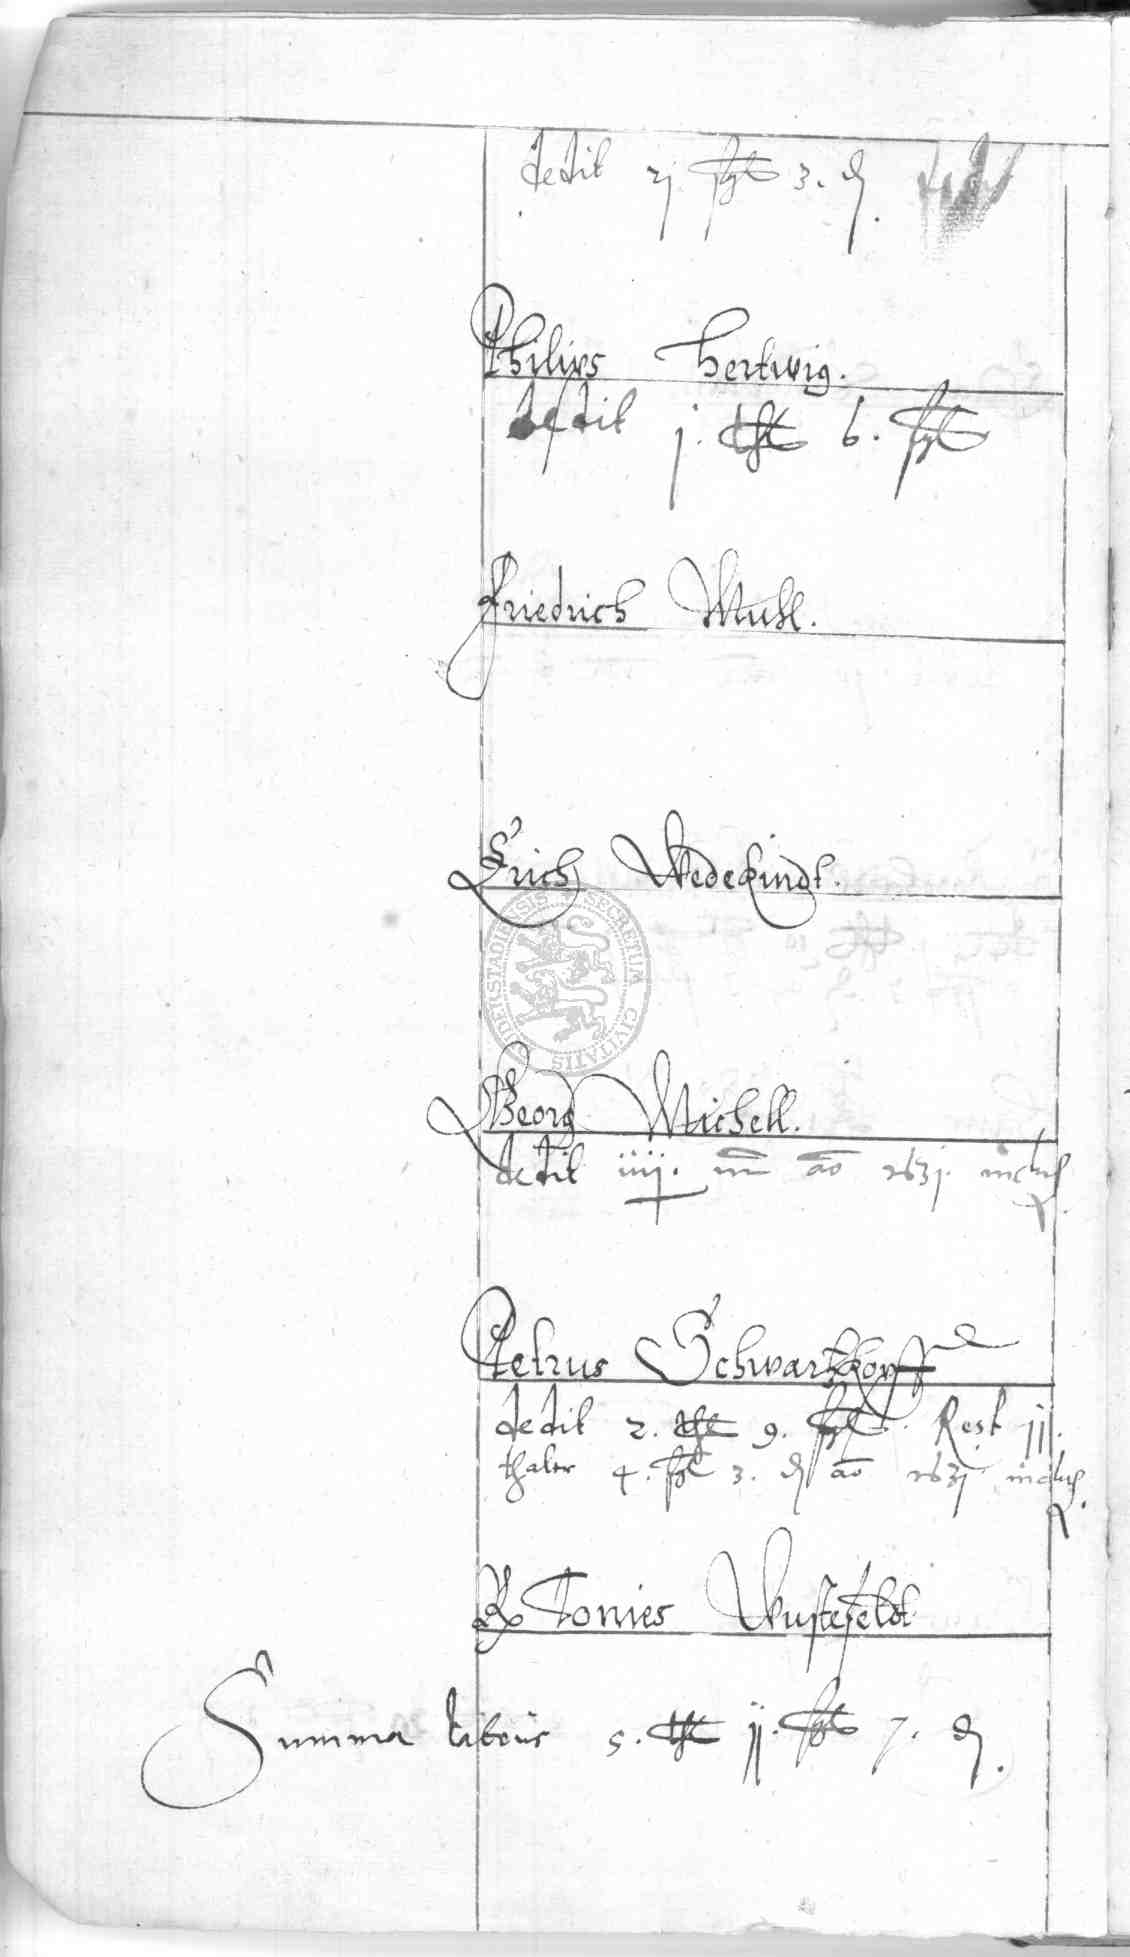 dedit 2j ßgl 3. ₰.
Philips Hertwig.
dedit j. thl 6. ßgl
Friedrich Muhl.
Erich Wedekindt.
SECRETUM CIVITATIS DUDERSTADIENSIS
Georg Michell.
dedit iiij. ao 1631. inclus
Petrus Schwartzkopff
dedit 2. thl 9. ßgl. Rest jj.
thaler 4. ßgl 3. ₰ ao 1631 inclus.
Tonies Wustefeldt
Summa lateris 5. thl jj. ßgl 7. ₰.